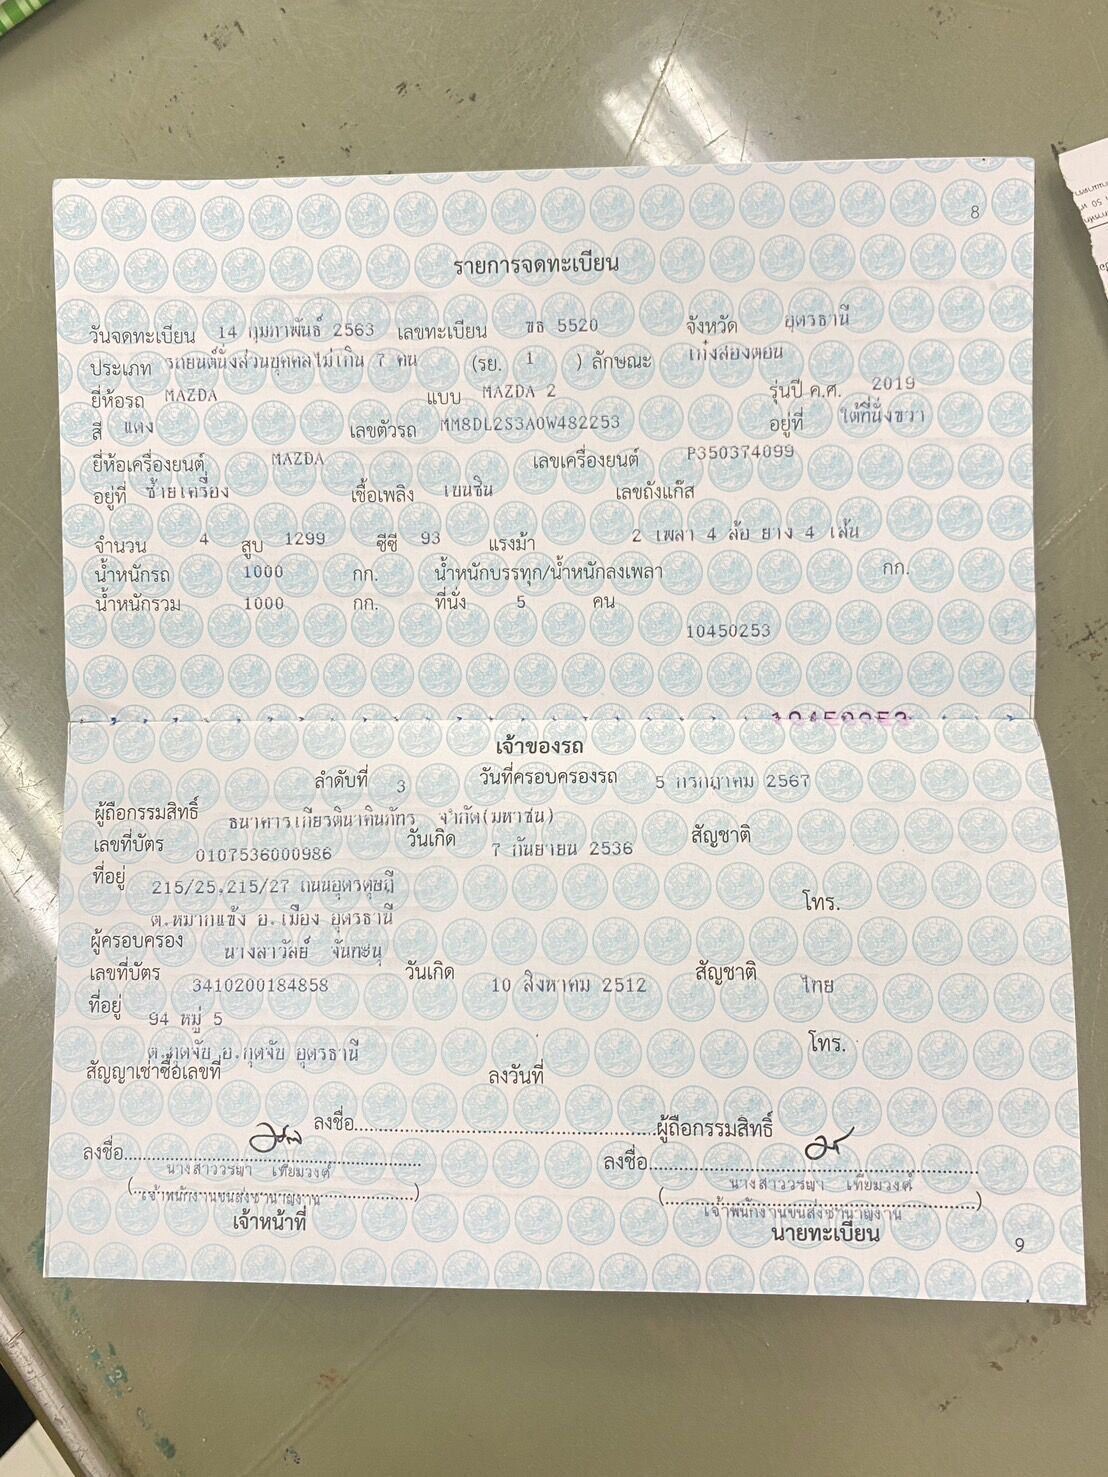 8
รายการจดทะเบียน
วันจดทะเบียน 14 กุมภาพันธ์ 2563 เลขทะเบียน ขธ 5520 จังหวัด อุดรธานี
ประเภท รถยนต์นั่งส่วนบุคคลไม่เกิน 7 คน (รย. 1 ) ลักษณะ เก๋งสองตอน
ยี่ห้อรถ MAZDA แบบ MAZDA 2 รุ่นปี ค.ศ. 2019
สี แดง เลขตัวรถ MM8DL2S3A0W482253 อยู่ที่ ใต้ที่นั่งขวา
ยี่ห้อเครื่องยนต์ MAZDA เลขเครื่องยนต์ P350374099
อยู่ที่ ซ้ายเครื่อง เชื้อเพลิง เบนซิน เลขถังแก๊ส
จำนวน 4 สูบ 1299 ซีซี 93 แรงม้า 2 เพลา 4 ล้อ ยาง 4 เส้น
น้ำหนักรถ 1000 กก. น้ำหนักบรรทุก/น้ำหนักลงเพลา กก.
น้ำหนักรวม 1000 กก. ที่นั่ง 5 คน
10450253
10450253
เจ้าของรถ
ลำดับที่ 3 วันที่ครอบครองรถ 5 กรกฎาคม 2567
ผู้ถือกรรมสิทธิ์ ธนาคารเกียรตินาคินภัทร จำกัด(มหาชน)
เลขที่บัตร 0107536000986 วันเกิด 7 กันยายน 2536 สัญชาติ
ที่อยู่ 215/25,215/27 ถนนอุดรดุษฎี
ต.หมากแข้ง อ.เมือง อุดรธานี โทร.
ผู้ครอบครอง นางลาวัลย์ จันทะนุ
เลขที่บัตร 3410200184858 วันเกิด 10 สิงหาคม 2512 สัญชาติ ไทย
ที่อยู่ 94 หมู่ 5
ต.กุดจับ อ.กุดจับ อุดรธานี โทร.
สัญญาเช่าซื้อเลขที่ ลงวันที่
ลงชื่อ....................ผู้ถือกรรมสิทธิ์
ลงชื่อ.................... ลงชื่อ....................
นางสาววรญา เทียมวงศ์ นางสาววรญา เทียมวงศ์
(เจ้าพนักงานขนส่งชำนาญงาน) (เจ้าพนักงานขนส่งชำนาญงาน)
เจ้าหน้าที่ นายทะเบียน
9